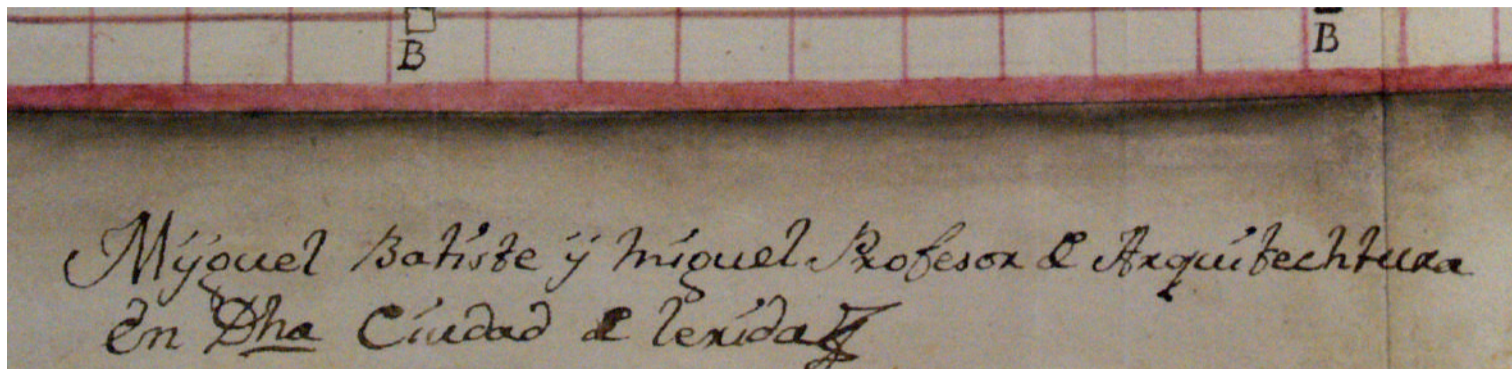 B B
Mÿguel Batiste ÿ Miguel Profesor de Arquitechtura
en Dha Ciudad de lerida